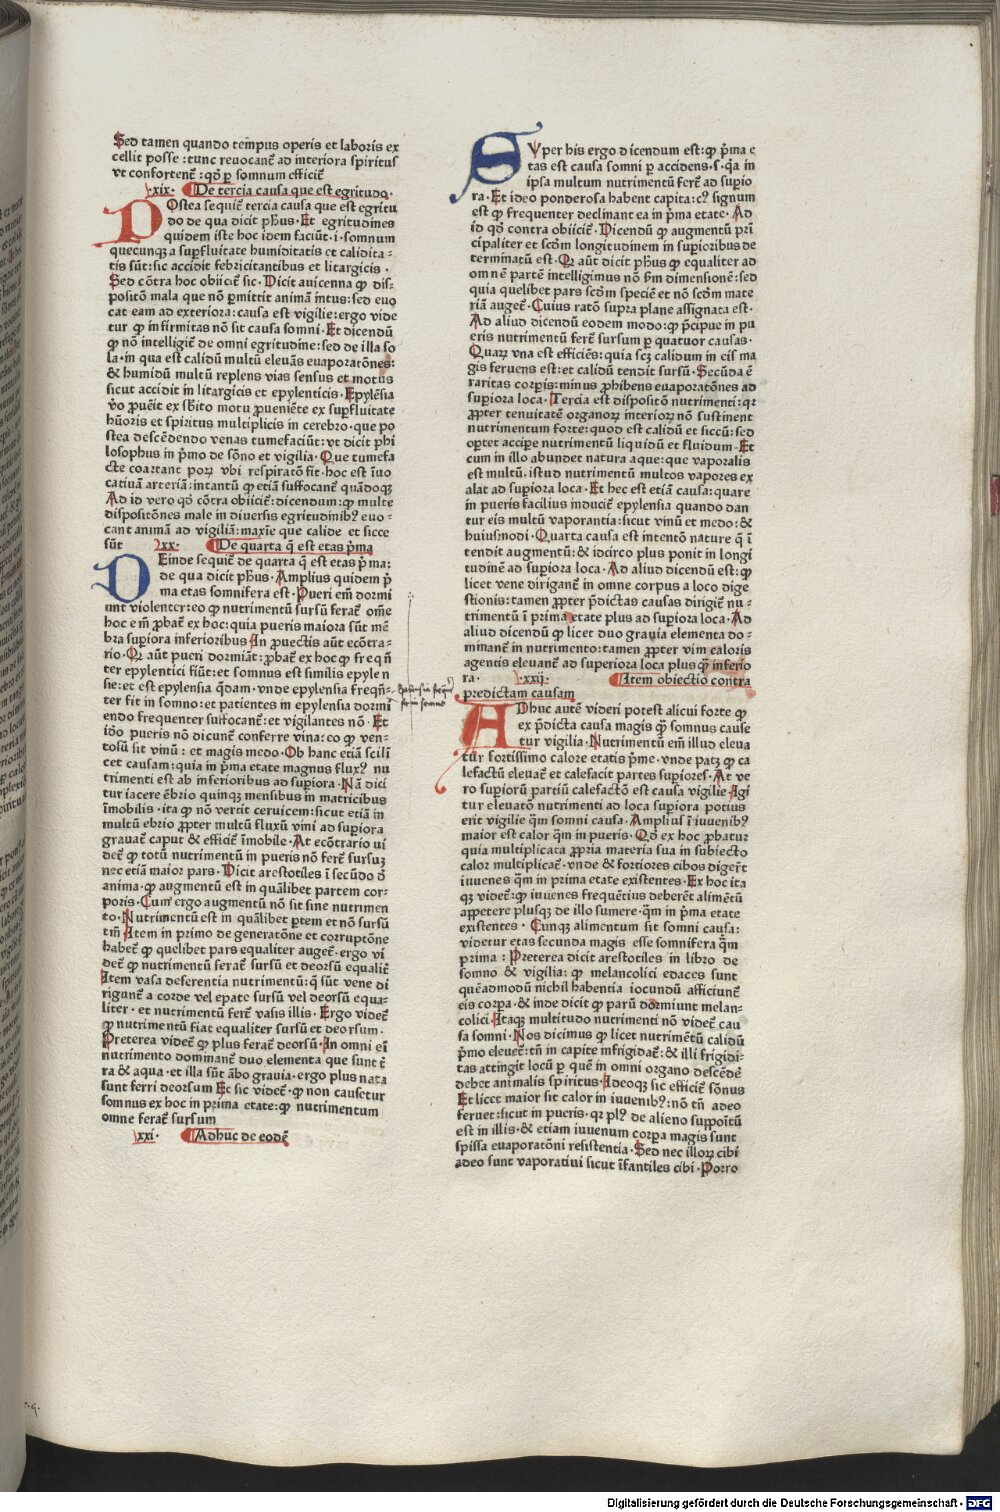 Sed tamen quando tempus operis et laboris ex
cellit posse :tunc reuocanť ad interiora spiritus
vt confortenť :qđ ꝑ somnum efficiť
.xix. De tercia causa que est egritudo.
POstea sequiť tercia causa que est egritu
do de qua dicit pħus. Et egritudines
quidem iste hoc idem faciūt .i. somnum
quecunqꝫ a suꝑfluitate humiditatis et calidita-
tis sūt: sic accidit febricitantibus et litargicis .
Sed cōtra hoc obiiciť sic. Dicit auicenna ꝙ dis-
positō mala que nō ꝑmittit animā intus: sed euo
cat eam ad exteriora: causa est vigilie: ergo vide
tur ꝙ infirmitas nō sit causa somni. Et dicendū
ꝙ nō intelligiť de omni egritudine: sed de illa so
la. in qua est calidū multū eleuās euaporatōnes:
& humidū multū replens vias sensus et motus
sicut accidit in litargicis et epylenticis. Epylēsia
v̊o ꝓueīt ex sb̄ito motu ꝓueniēte ex suꝑfluitate
hūoris et spiritus multiplicis in cerebro. que po
stea descēdendo venas tumefaciūt: vt dicit phi
losophus in p̄mo de sōno et vigilia. Que tumefa
cte coartant poꝝ vbi respiratō fit. hoc est ī uo
catiuā arteriā: intantū ꝙ etiā suffocanť quādoqꝫ
Ad id vero qđ cōtra obiiciť: dicendum: ꝙ multe
dispositōnes male in diuersis egritudinibꝫ euo-
cant animā ad vigiliā: maxīe que calide et sicce
sūt .xx. De quarta q̄ est etas p̄ma
DEinde sequiť de quarta q̄ est etas p̄ma:
de qua dicit pħus. Amplius quidem p̄
ma etas somnifera est. Pueri em̄ dormi
unt violenter: eo ꝙ nutrimentū sursū ferať. om̄e
hoc em̄ ꝓbať ex hoc: quia pueris maiora sūt mē
bra suꝑiora inferioribus. In ꝓuectis aūt ecōtra-
rio. Qꝛ aūt pueri dormiāt: ꝓbať ex hoc ꝙ freqn̄
ter epylentici fiūt: et somnus est similis epylen
sie: et est epylensia q̄dam. vnde epylensia freqn̄-
ter fit in somno: et patientes in epylensia dormi
endo frequenter suffocanť: et vigilantes nō. Et
iđo pueris nō dicunť conferre vina: eo ꝙ ven-
tosū sit vinū: et magis medo. Ob hanc etiā scili
cet causam: quia in p̄ma etate magnus fluxꝰ nu
trimenti est ab inferioribus ad suꝑiora. Nā dici
tur iacere ēbrio quinqꝫ mensibus in matricibus
īmobilis. ita ꝙ nō vertit ceruicem: sicut etiā in
multū ebrio ꝓpter multū fluxū vini ad suꝑiora
grauať caput & efficiť īmobile. At ecōtrario ui
deť ꝙ totū nutrimentū in pueris nō ferť sursuꝫ
nec etiā maior pars. Dicit arestotiles ī secūdo đ
anima. ꝙ augmentū est in quālibet partem cor-
poris. Cum ergo augmentū nō sit sine nutrimen
to. Nutrimentū est in quālibet ꝑtem et nō sursū
tm̄. Item in primo de generatōne et corruptōne
habeť ꝙ quelibet pars equaliter augeť. ergo vi
deť ꝙ nutrimentū ferať sursū et deorsū equaliť
Item vasa deferentia nutrimentū: q̄ sūt vene di
rigunť a corde vel epate sursū vel deorsū equa-
liter. et nutrimentū ferť vasis illis. Ergo videť
ꝙ nutrimentū fiat equaliter sursū et deorsum.
Preterea videť ꝙ plus ferať deorsū. In omni eī
nutrimento dominanť duo elementa que sunt ť
ra & aqua. et illa sūt ābo grauia. ergo plus nata
sunt ferri deorsum Et sic videť. ꝙ non causetur
somnus ex hoc in prima etate: ꝙ nutrimentum
omne ferať sursum
.xxi. Adhuc de eodē
SVper his ergo dicendum est: ꝙ p̄ma e
tas est causa somni ꝑ accidens. s. q̄a in
ipsa multum nutrimentū ferť ad suꝑio
ra. Et ideo ponderosa habent capita: cꝰ signum
est ꝙ frequenter declinant ea in p̄ma etate. Ad
id qđ contra obiiciť. Dicendū ꝙ augmentū pri
cipaliter et scđm longitudinem in suꝑioribus de
terminatū est. Qꝛ aūt dicit pħus ꝙ equaliter ad
omnē partē intelligimus nō hm̄ dimensionē: sed
quia quelibet pars scđm speciē et nō scđm mate
riā augeť. Cuius ratō supra plane assignata est.
Ad aliud dicendū eodem modo: ꝙ p̄cipue in pu
eris nutrimentū ferť sursum ꝑ quatuor causas.
Quaꝝ vna est efficiēs: quia scꝫ calidum in eis ma
gis feruens est: et calidū tendit sursū. Secūda ē
raritas corꝑis: minus ꝓhibens euaporatōnes ad
suꝑiora loca. Tercia est dispositō nutrimenti: qꝛ
ꝓpter tenuitatē organoꝝ interioꝝ nō sustinent
nutrimentum forte: quod est calidū et siccū: sed
oꝑtet acciꝑe nutrimentū liquidū et fluidum. Et
cum in illo abundet natura aque: que vaporalis
est multū. istud nutrimentū multos vapores ex
alat ad suꝑiora loca. Et hec est etiā causa: quare
in pueris facilius induciť epylensia quando dan
tur eis multū vaporantia: sicut vinū et medo: &
huiusmodi. Quarta causa est intentō nature q̄ ī
tendit augmentū: & idcirco plus ponit in longi
tudinē ad suꝑiora loca. Ad aliud dicendū est: ꝙ
licet vene diriganť in omne corpus a loco dige
stionis: tamen ꝓpter p̄dictas causas dirigiť nu-
trimentū ī prima etate plus ad suꝑiora loca. Ad
aliud dicendū ꝙ licet duo grauia elementa do-
minanť in nutrimento: tamen ꝓpter vim caloris
agentis eleuanť ad superiora loca plus qꝫ inferio
ra. .xxij. Item obiectio contra
predictam causam
ADhuc autē videri potest alicui forte ꝙ
ex p̄dicta causa magis ꝙ somnus cause
tur vigilia. Nutrimentū em̄ illud eleua
tur fortissimo calore etatis p̄me. vnde patꝫ ꝙ ca
lefactū eleuať et calefacit partes suꝑiores. At ve
ro suꝑiorū partiū calefactō est causa vigilie. Igi
tur eleuatō nutrimenti ad loca suꝑiora potius
erit vigilie q̄m somni causa. Amplius ī iuuenibꝫ
maior est calor q̄m in pueris. Qđ ex hoc ꝓbatur
quia multiplicata ꝓpria materia sua in subiecto
calor multiplicať. vnde & fortiores cibos digerūt
iuuenes q̄m in prima etate existentes. Ex hoc ita
qꝫ videť: ꝙ iuuenes frequētius deberēt alimētū
appetere plusqꝫ de illo sumere. q̄m in p̄ma etate
existentes. Cunqꝫ alimentum sit somni causa:
videtur etas secunda magis esse somnifera q̄m
prima : Preterea dicit arestotiles in libro de
somno & vigilia: ꝙ melancolici edaces sunt
quēadmodū nichil habentia iocundū afficiunť
eis corpa. & inde dicit ꝙ parū dormiunt melan-
colici. Itaqꝫ multitudo nutrimenti nō videť cau
sa somni. Nos dicimus ꝙ licet nutrimētū calidū
p̄mo eleueť: tn̄ in capite infrigidať: & illi frigidi-
tas attingit locū ꝑ quē in omni organo descēdē
debet animalis spiritus. Ideoqꝫ sic efficiť sōnus
Et licet maior sit calor in iuuenibꝫ: nō tn̄ adeo
feruet: sicut in pueris. qꝛ plꝰ de alieno suppoītū
est in illis. & etiam iuuenum corpa magis sunt
spissa euaporatōni resistentia. Sed nec illoꝝ cibi
adeo sunt vaporatiui sicut īfantiles cibi. Porro
Digitalisierung gefördert durch die Deutsche Forschungsgemeinschaft - DFG